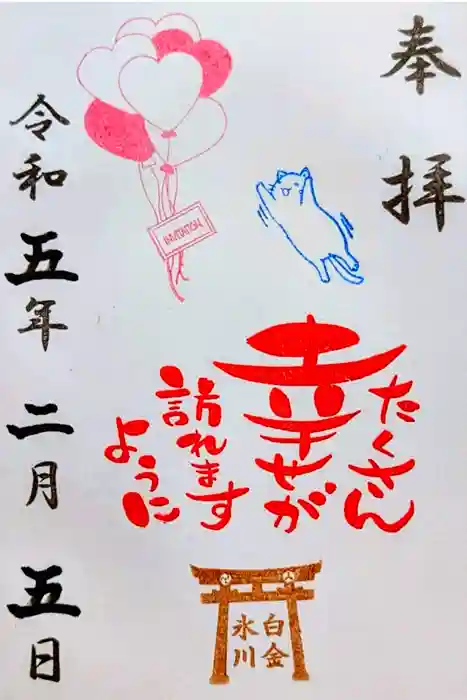 奉拝
たくさん
幸せが
訪れます
ように
白金
氷川
令和五年二月五日
INVITATION